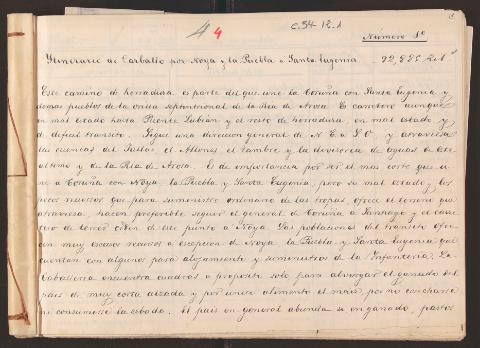 4 4
C.34-12.1
Número 1º
Itinerario de Carballo por Noya y la Puebla a Santa Eugenia. 92,885
Este camino de herradura es parte del que une la Coruña con Santa Eugenia y
demas pueblos de la orilla septentrional de la Ria de Arosa. Es carretero aunque
en mal estado hasta Puente Lubián y el resto de herradura, en mal estado y
de dificil transito. Sigue una direccion general de N.E a S.O y atraviesa
las cuencas del Jallas el Allones el Tambre y la divisoria de aguas de este
ultimo y de la Ria de Arosa. Es de importancia por ser el mas corto que u-
ne a Coruña con Noya, la Puebla y Santa Eugenia, pero su mal estado y los
pocos recursos que para suministro ordinario de las tropas, ofrece el terreno que
atraviesa hacen preferible seguir el general de Coruña a Santiago y el carre-
tero de tercer orden de este punto a Noya. Las poblaciones del transito ofre-
cen muy escasos recursos a escepcion de Noya la Puebla y Santa Eugenia que
cuentan con algunos para alojamiento y suministros de la Infanteria. La
Caballeria encuentra cuadras a proposito solo para alvergar el ganado del
pais de muy corta alzada y por unico alimento el maiz, por no cosecharse
ni consumirse la cebada. El pais en general abunda en ganado, pastos